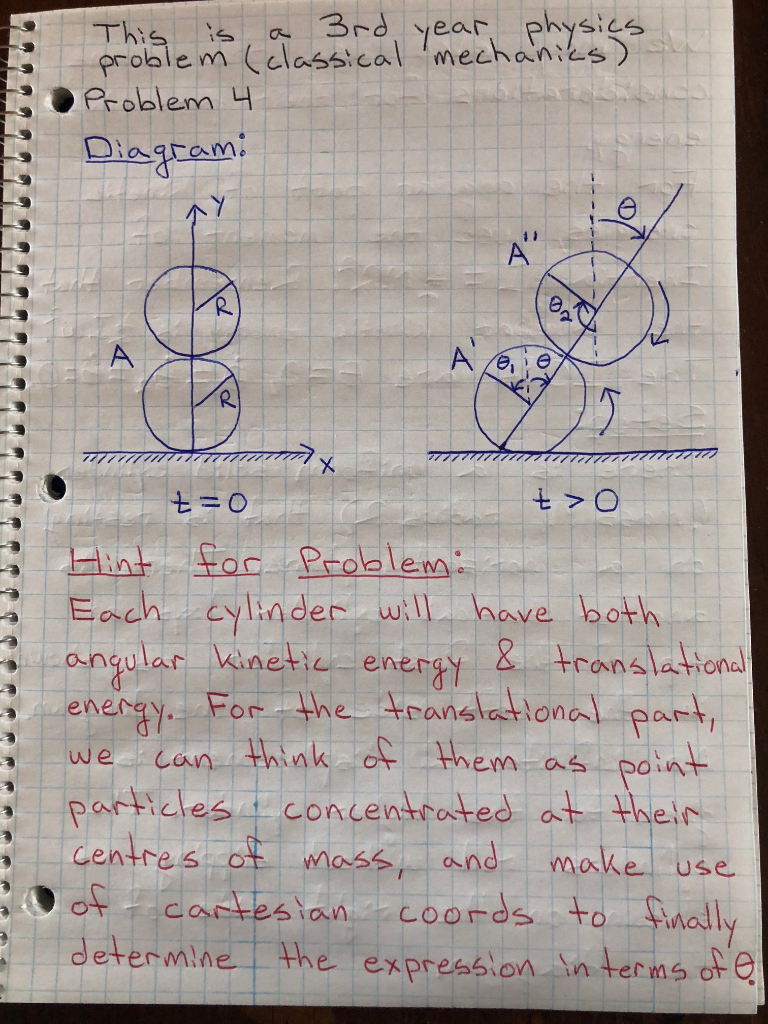 This is a 3rd year physics
problem (classical mechanics)
Problem 4
Diagram:
Y
R
A
R
x
t = 0
θ
A"
θ₂
A'
θ₁ θ
t > 0
Hint for Problem:
Each cylinder will have both
angular kinetic energy & translational
energy. For the translational part,
we can think of them as point
particles concentrated at their
centres of mass, and make use
of cartesian coords to finally
determine the expression in terms of θ.